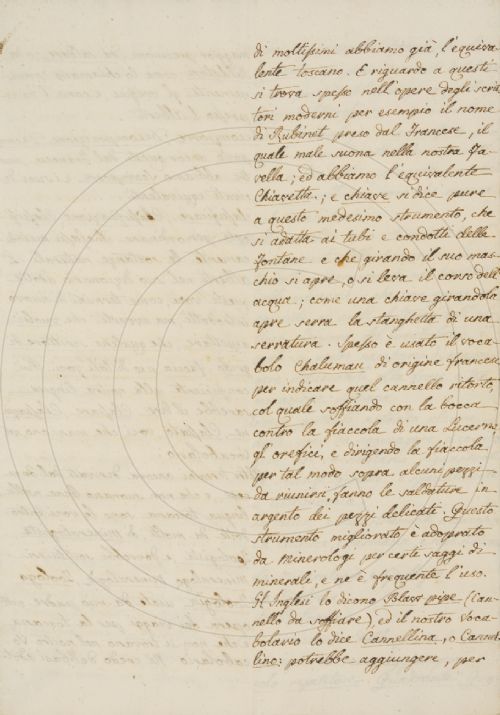 di moltissimi abbiamo già, l'equiva-
lente toscano. E riguardo a questi
si trova spesso nell'opere degli scrit
tori moderni per esempio il nome
di Rubinet preso dal Francese, il
quale male suona nella nostra Fa-
vella; ed abbiamo l'equivalente
Chiavetta.; e chiave si dice pure
a questo medesimo strumento, che
si adatta ai tubi e condotti delle
Fontane e che girando il suo mas-
chio si apre, o si leva il corso dell'
acqua; come una chiave girandola
apre serra la stanghetta di una
serratura. Spesso è usato il voca-
bolo Chalumau di origine francese
per indicare quel cannello ritorto,
col quale soffiando con la bocca
contro la fiaccola di una Lucerna
gl'orefici, e dirigendo la fiaccola
per tal modo sopra alcuni pezzi
da riunirsi, fanno le saldature in
argento dei pezzi delicati. Questo
strumento migliorato è adoprato
da Minerologi per certi saggi di
minerale, e ne è frequente l'uso.
Gl'Inglesi lo dicono Blass pipe (Can-
nello da soffiare), ed il nostro Voca-
bolario lo dice Cannellina, o Cannel-
lino: potrebbe aggiungere, per